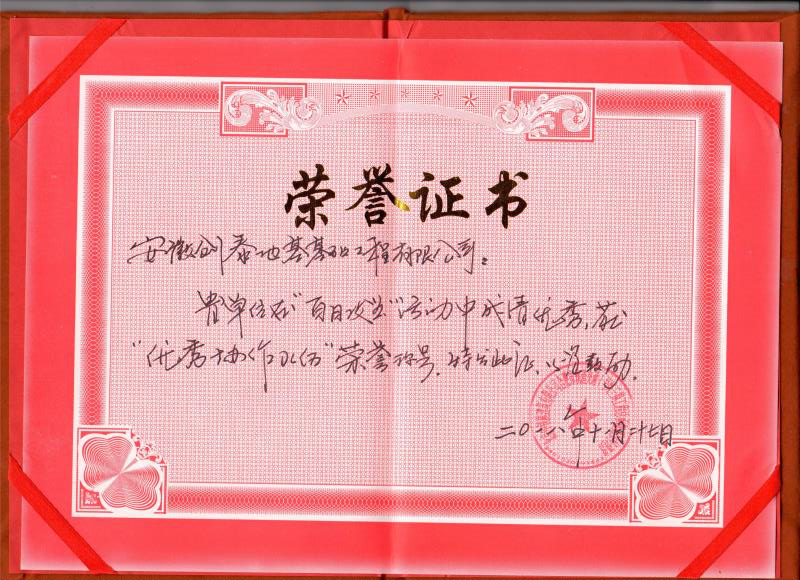 荣誉证书
安徽创泰地基基础工程有限公司。
贵单位在“百日攻坚”活动中成绩优秀，获
“优秀协作队伍”荣誉称号，特发此证，以资鼓励。
二〇一八年十月二十七日